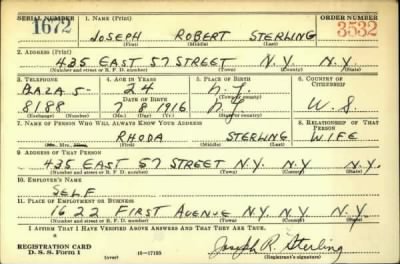 SERIAL NUMBER 1. NAME (Print) ORDER NUMBER
1672 JOSEPH ROBERT STERLING 3532
(First) (Middle) (Last)
2. ADDRESS (Print)
435 EAST 57 STREET N.Y. N.Y.
(Number and street or R. F. D. number) (Town) (County) (State)
3. TELEPHONE 4. AGE IN YEARS 5. PLACE OF BIRTH 6. COUNTRY OF CITIZENSHIP
24 N.Y.
DATE OF BIRTH (Town or county)
8188 8 1916 N.Y. U.S.
(Exchange) (Number) (Mo.) (Day) (Yr.) (State or country)
7. NAME OF PERSON WHO WILL ALWAYS KNOW YOUR ADDRESS 8. RELATIONSHIP OF THAT PERSON
RHODA STERLING WIFE
(Mr., Mrs., Miss) (First) (Middle) (Last)
9. ADDRESS OF THAT PERSON
435 EAST 57 STREET N.Y. N.Y. N.Y.
(Number and street or R. F. D. number) (Town) (County) (State)
10. EMPLOYER'S NAME
SELF
11. PLACE OF EMPLOYMENT OR BUSINESS
1622 FIRST AVENUE N.Y. N.Y. N.Y.
(Number and street or R. F. D. number) (Town) (County) (State)
I AFFIRM THAT I HAVE VERIFIED ABOVE ANSWERS AND THAT THEY ARE TRUE.
REGISTRATION CARD
D. S. S. Form 1 16—17105 Joseph R. Sterling
(over) (Registrant's signature)